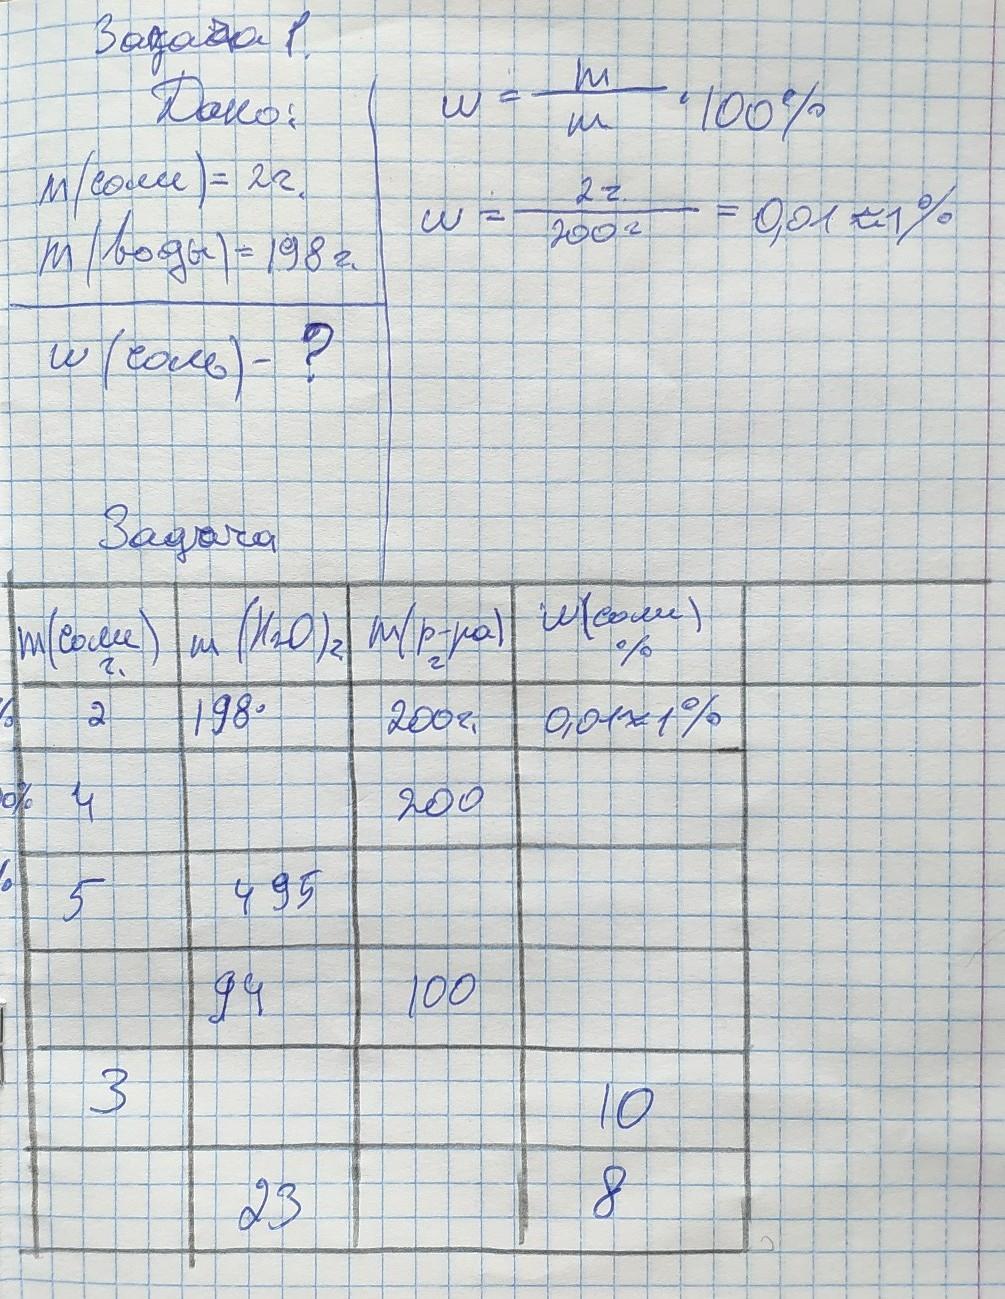 Задача 1.
Дано:
m(соли)= 2г.
m(воды)= 198г.
w(соль)- ?
w = m / m · 100%
w = 2г. / 200г = 0,01 ≈ 1%
Задача
m(соли) г. m(H₂O) г m(р-ра) г w(соли) %
% 2 198· 200г. 0,01≈1%
0% 4 200
% 5 495
94 100
3 10
23 8